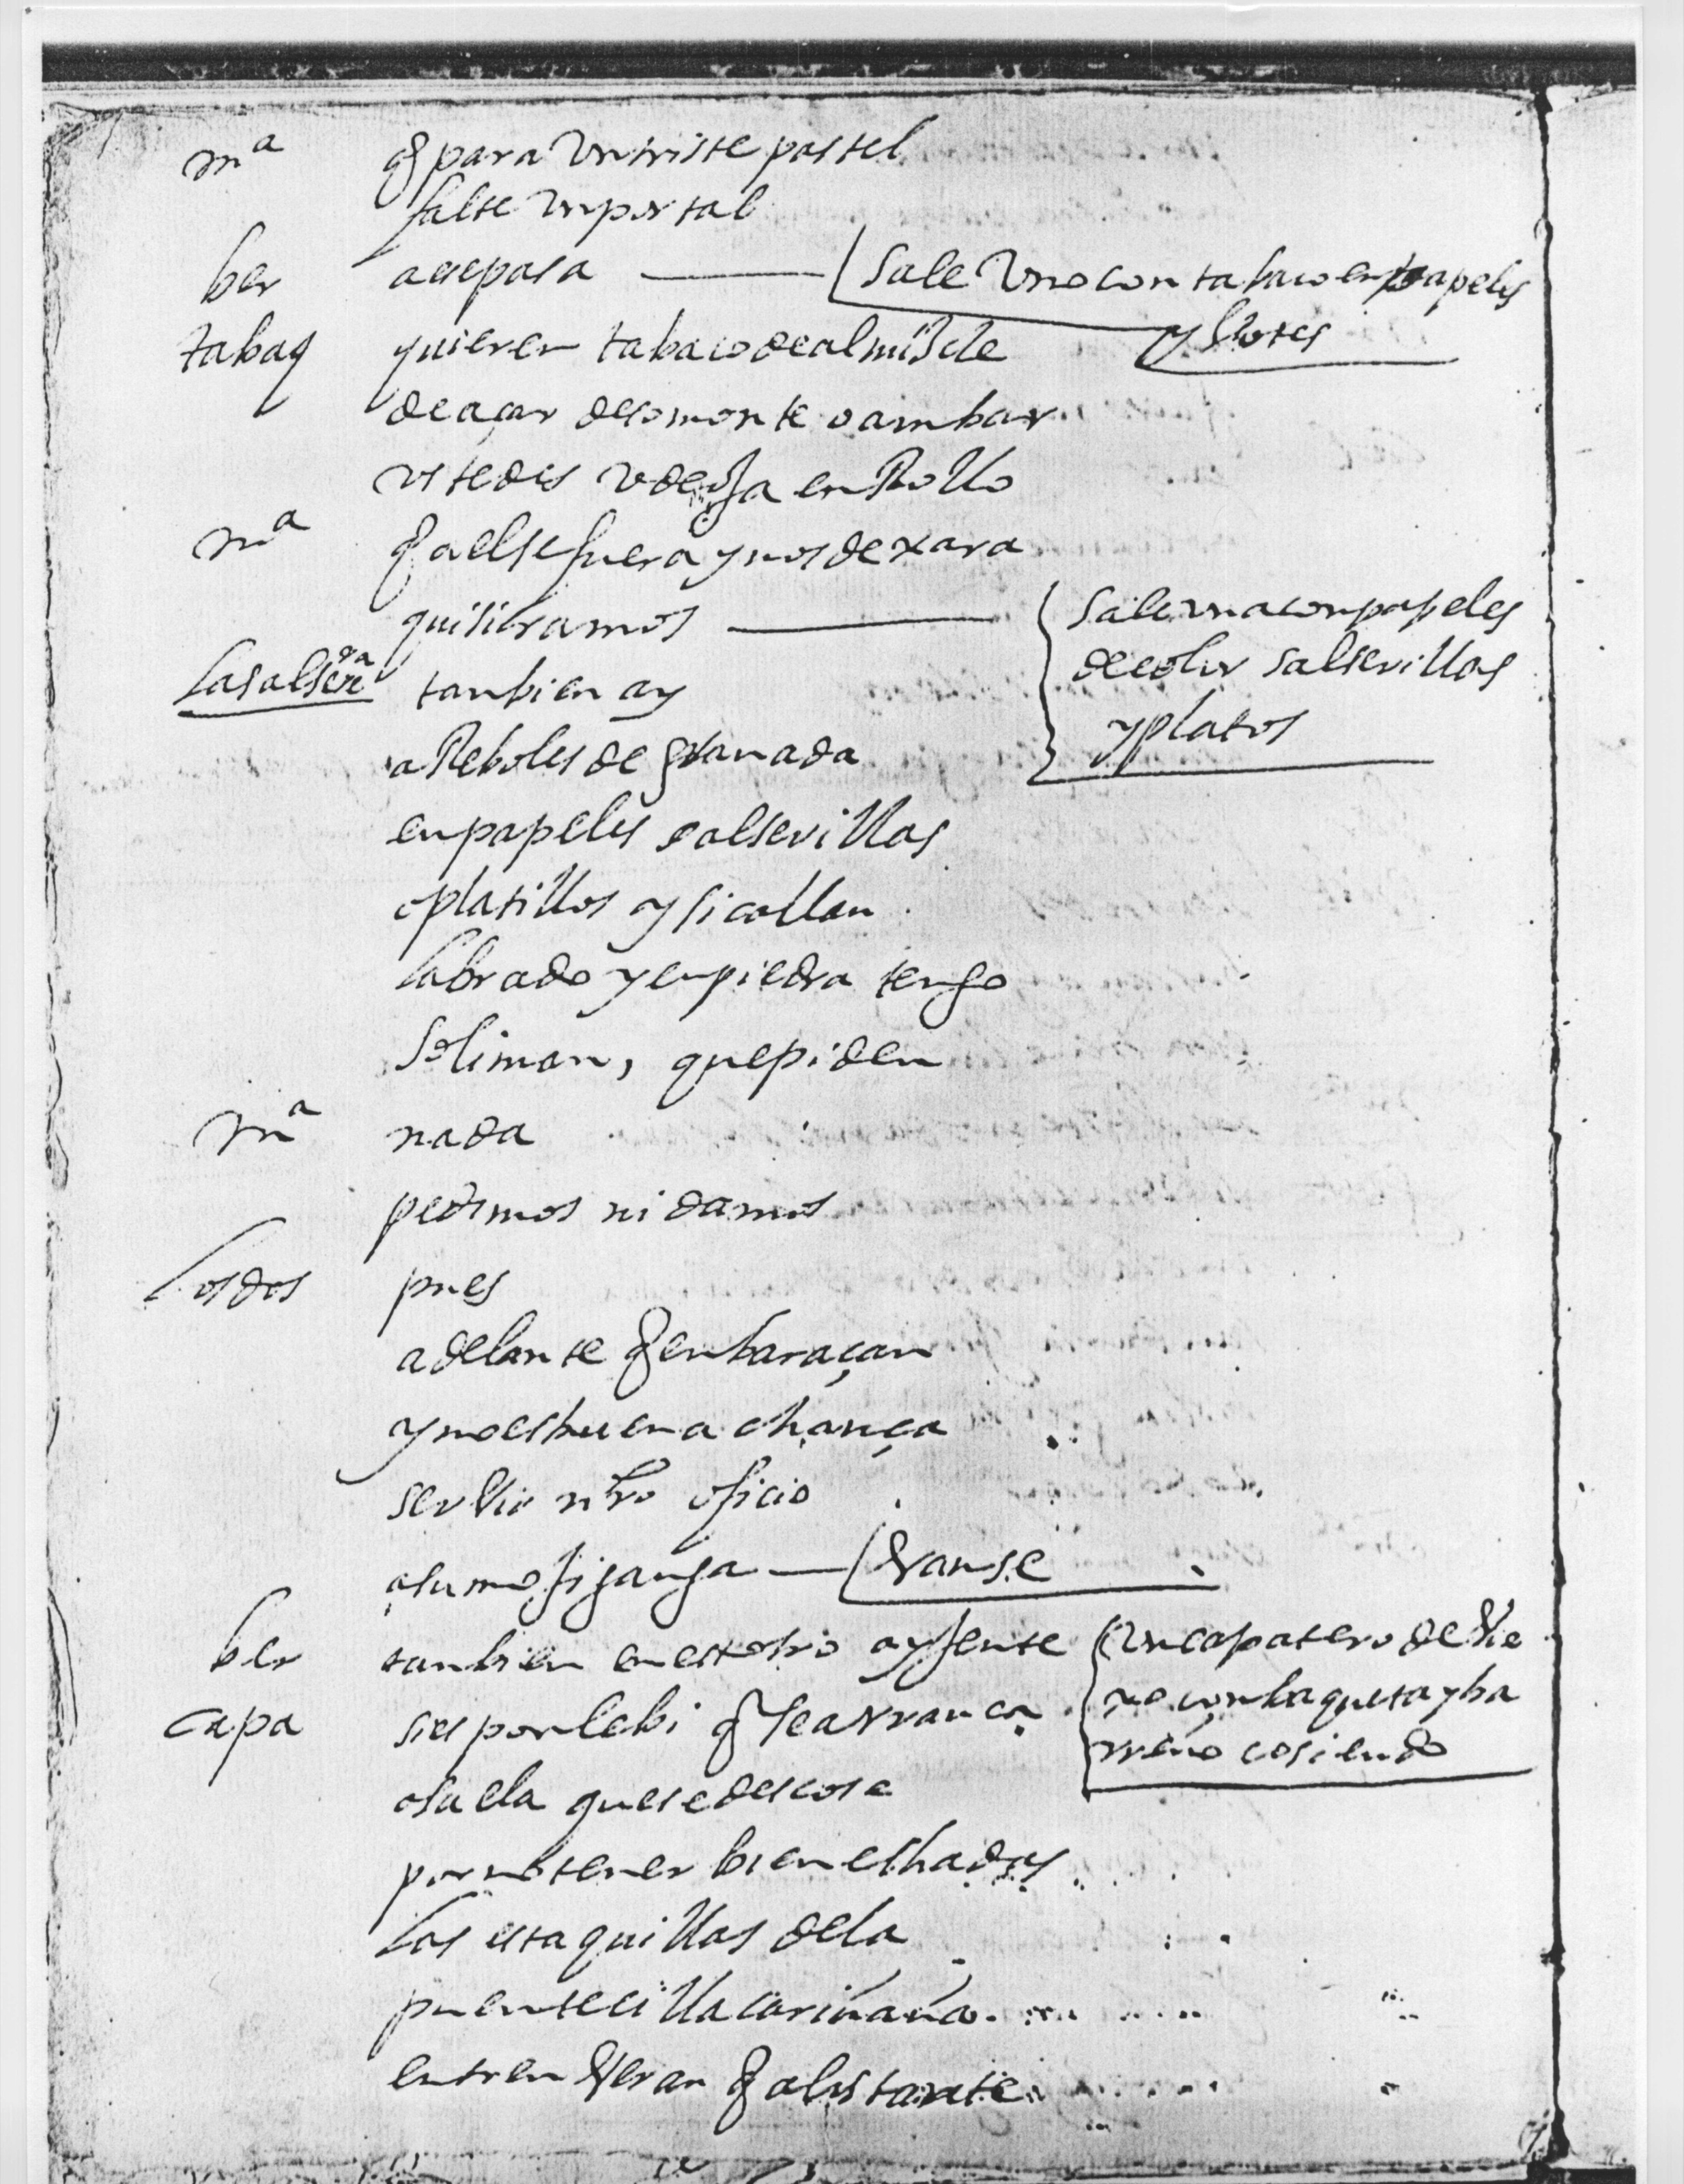 mª q para Un triste pastel
falte Un portal
ber acepasa Sale Uno con tabaco en papeles
y botes
tabaq quieren tabaco de almiscle
de açar de somonte o ambar
ustedes en Rollo
mª q a el se fuera y nos dexara
quisieramos Sale una con papeles
de color salserillas
y platos
La salsera tanbien ay
a Reboles de granada
en papeles salserillas
o platillos y si callan
labrado y en piedra tengo
Soliman, que piden
mª nada
pedimos ni damos
los dos pues
adelante q enbaraçan
y no es buena chança
servir nro oficio
a su mogiganga Vanse
ber tanbien en esto ay gente Un çapatero de Vie
jo con baqueta y ba
rreño cosiendo
çapa si es por lebi q se arranca
o suela que se descose
por no tener bien echadas
las estaquillas de la
puentecilla cariñana
entren Veran q al istante